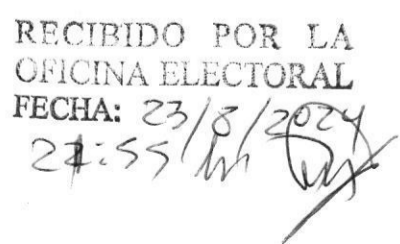 RECIBIDO POR LA
OFICINA ELECTORAL
FECHA: 23/8/2024